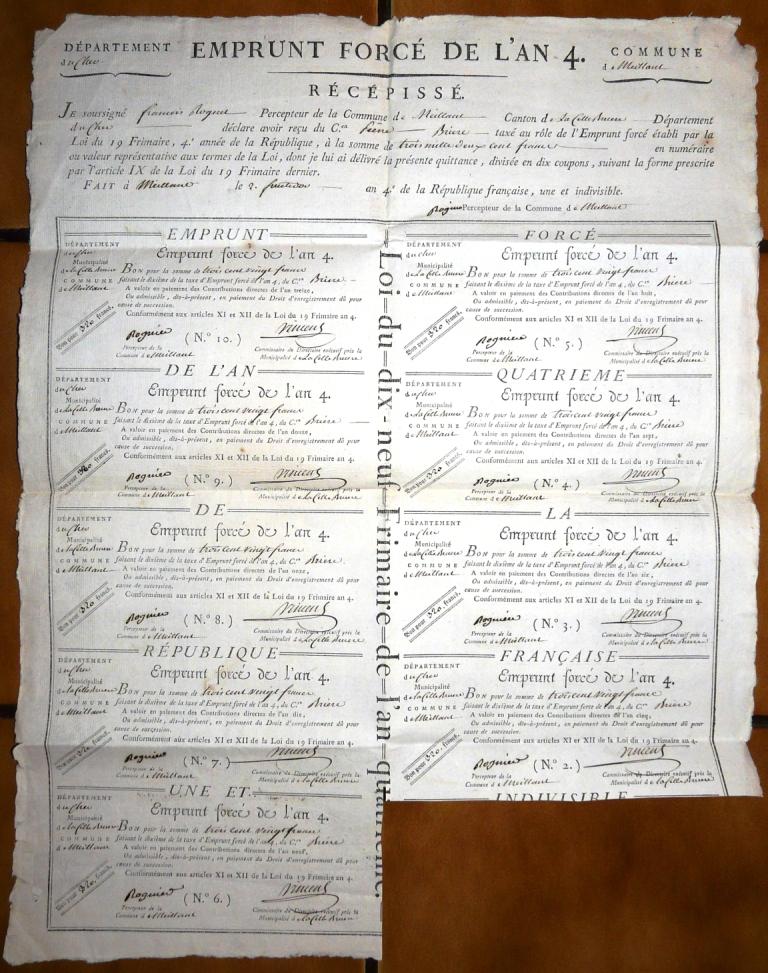 DÉPARTEMENT
du Cher
EMPRUNT FORCÉ DE L'AN 4.
COMMUNE
de Meillant
RÉCÉPISSÉ.
JE soussigné françois Rognet Percepteur de la Commune de Meillant Canton de la Celle Bruere Département
du Cher déclare avoir reçu du C.en Brière taxé au rôle de l'Emprunt forcé établi par la
Loi du 19 Frimaire, 4.e année de la République, à la somme de trois mille deux cent francs en numéraire
ou valeur représentative aux termes de la Loi, dont je lui ai délivré la présente quittance, divisée en dix coupons, suivant la forme prescrite
par l'article IX de la Loi du 19 Frimaire dernier.
FAIT à Meillant le 2. fructidor an 4.e de la République française, une et indivisible.
Percepteur de la Commune de Meillant
EMPRUNT
DÉPARTEMENT
du Cher
Municipalité
de la Celle Bruere
COMMUNE
de Meillant
Bon pour 320 francs.
Emprunt forcé de l'an 4.
BON pour la somme de trois cent vingt francs
faisant le dixième de la taxe d'Emprunt forcé de l'an 4, du C.en Brière
A valoir en paiement des Contributions directes de l'an treize,
Ou admissible, dix-à-présent, en paiement du Droit d'enregistrement dû pour
cause de succession.
Conformément aux articles XI et XII de la Loi du 19 Frimaire an 4.
(N.º 10.)
Vincent
Percepteur de la
Commune de Meillant
Commissaire du Directoire exécutif près la
Municipalité de la Celle Bruere
DE L'AN
DÉPARTEMENT
du Cher
Municipalité
de la Celle Bruere
COMMUNE
de Meillant
Bon pour 320 francs.
Emprunt forcé de l'an 4.
BON pour la somme de trois cent vingt francs
faisant le dixième de la taxe d'Emprunt forcé de l'an 4, du C.en Brière
A valoir en paiement des Contributions directes de l'an douze,
Ou admissible, dix-à-présent, en paiement du Droit d'enregistrement dû pour
cause de succession.
Conformément aux articles XI et XII de la Loi du 19 Frimaire an 4.
(N.º 9.)
Vincent
Percepteur de la
Commune de Meillant
Commissaire du Directoire exécutif près la
Municipalité de la Celle Bruere
DE
DÉPARTEMENT
du Cher
Municipalité
de la Celle Bruere
COMMUNE
de Meillant
Bon pour 320 francs.
Emprunt forcé de l'an 4.
BON pour la somme de trois cent vingt francs
faisant le dixième de la taxe d'Emprunt forcé de l'an 4, du C.en Brière
A valoir en paiement des Contributions directes de l'an onze,
Ou admissible, dix-à-présent, en paiement du Droit d'enregistrement dû pour
cause de succession.
Conformément aux articles XI et XII de la Loi du 19 Frimaire an 4.
(N.º 8.)
Vincent
Percepteur de la
Commune de Meillant
Commissaire du Directoire exécutif près la
Municipalité de la Celle Bruere
RÉPUBLIQUE
DÉPARTEMENT
du Cher
Municipalité
de la Celle Bruere
COMMUNE
de Meillant
Bon pour 320 francs.
Emprunt forcé de l'an 4.
BON pour la somme de trois cent vingt francs
faisant le dixième de la taxe d'Emprunt forcé de l'an 4, du C.en Brière
A valoir en paiement des Contributions directes de l'an dix,
Ou admissible, dix-à-présent, en paiement du Droit d'enregistrement dû pour
cause de succession.
Conformément aux articles XI et XII de la Loi du 19 Frimaire an 4.
(N.º 7.)
Vincent
Percepteur de la
Commune de Meillant
Commissaire du Directoire exécutif près la
Municipalité de la Celle Bruere
UNE ET
DÉPARTEMENT
du Cher
Municipalité
de la Celle Bruere
COMMUNE
de Meillant
Bon pour 320 francs.
Emprunt forcé de l'an 4.
BON pour la somme de trois cent vingt francs
faisant le dixième de la taxe d'Emprunt forcé de l'an 4, du C.en Brière
A valoir en paiement des Contributions directes de l'an neuf,
Ou admissible, dix-à-présent, en paiement du Droit d'enregistrement dû pour
cause de succession.
Conformément aux articles XI et XII de la Loi du 19 Frimaire an 4.
(N.º 6.)
Vincent
Percepteur de la
Commune de Meillant
Commissaire du Directoire exécutif près la
Municipalité de la Celle Bruere
Loi=du=dix-neuf=Frimaire=de=l'an=quatrième.
FORCÉ
DÉPARTEMENT
du Cher
Municipalité
de la Celle Bruere
COMMUNE
de Meillant
Bon pour 320 francs.
Emprunt forcé de l'an 4.
BON pour la somme de trois cent vingt francs
faisant le dixième de la taxe d'Emprunt forcé de l'an 4, du C.en Brière
A valoir en paiement des Contributions directes de l'an huit,
Ou admissible, dix-à-présent, en paiement du Droit d'enregistrement dû pour
cause de succession.
Conformément aux articles XI et XII de la Loi du 19 Frimaire an 4.
(N.º 5.)
Vincent
Percepteur de la
Commune de Meillant
Commissaire du Directoire exécutif près la
Municipalité de la Celle Bruere
QUATRIEME
DÉPARTEMENT
du Cher
Municipalité
de la Celle Bruere
COMMUNE
de Meillant
Bon pour 320 francs.
Emprunt forcé de l'an 4.
BON pour la somme de trois cent vingt francs
faisant le dixième de la taxe d'Emprunt forcé de l'an 4, du C.en Brière
A valoir en paiement des Contributions directes de l'an sept,
Ou admissible, dix-à-présent, en paiement du Droit d'enregistrement dû pour
cause de succession.
Conformément aux articles XI et XII de la Loi du 19 Frimaire an 4.
(N.º 4.)
Vincent
Percepteur de la
Commune de Meillant
Commissaire du Directoire exécutif près la
Municipalité de la Celle Bruere
LA
DÉPARTEMENT
du Cher
Municipalité
de la Celle Bruere
COMMUNE
de Meillant
Bon pour 320 francs.
Emprunt forcé de l'an 4.
BON pour la somme de trois cent vingt francs
faisant le dixième de la taxe d'Emprunt forcé de l'an 4, du C.en Brière
A valoir en paiement des Contributions directes de l'an six,
Ou admissible, dix-à-présent, en paiement du Droit d'enregistrement dû pour
cause de succession.
Conformément aux articles XI et XII de la Loi du 19 Frimaire an 4.
(N.º 3.)
Vincent
Percepteur de la
Commune de Meillant
Commissaire du Directoire exécutif près la
Municipalité de la Celle Bruere
FRANÇAISE
DÉPARTEMENT
du Cher
Municipalité
de la Celle Bruere
COMMUNE
de Meillant
Bon pour 320 francs.
Emprunt forcé de l'an 4.
BON pour la somme de trois cent vingt francs
faisant le dixième de la taxe d'Emprunt forcé de l'an 4, du C.en Brière
A valoir en paiement des Contributions directes de l'an cinq,
Ou admissible, dix-à-présent, en paiement du Droit d'enregistrement dû pour
cause de succession.
Conformément aux articles XI et XII de la Loi du 19 Frimaire an 4.
(N.º 2.)
Vincent
Percepteur de la
Commune de Meillant
Commissaire du Directoire exécutif près la
Municipalité de la Celle Bruere
INDIVISIBLE